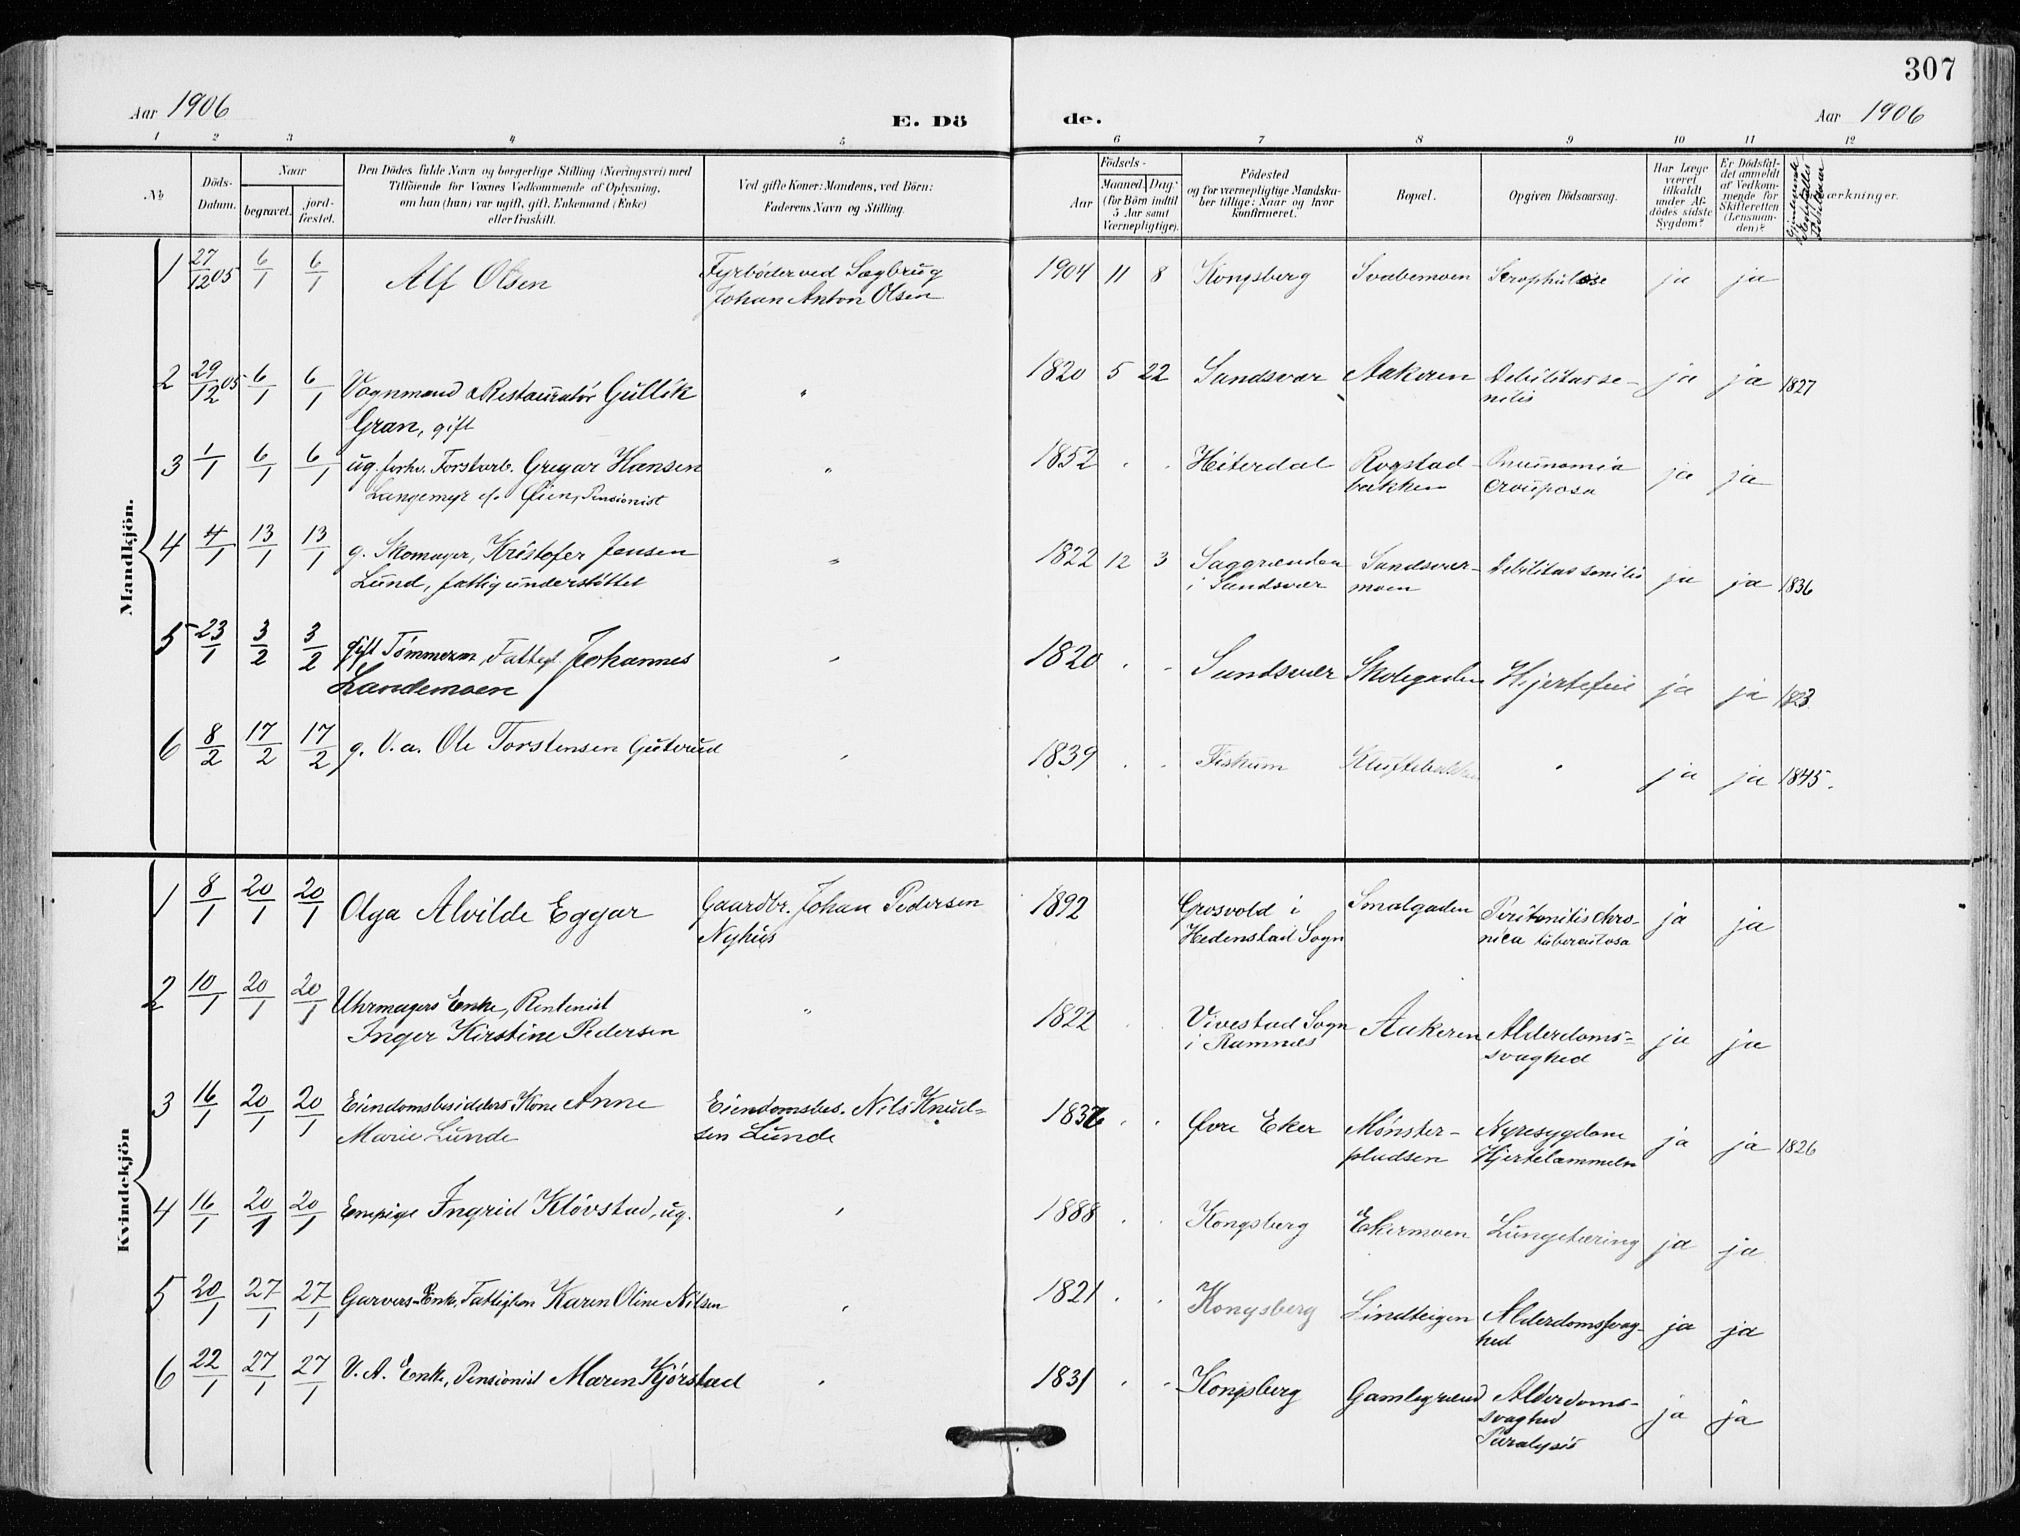 307
Aar 1906
E. Dö
de.
Aar 1906
1 2 3 4 5 6 7 8 9 10 11 12
No.
Döds-
Datum.
Naar
begravet.
jord-
fæstet.
Den Dödes fulde Navn og borgerlige Stilling (Næringsvei) med
Tilföiende for Voxnes Vedkommende af Oplysning,
om han (hun) var ugift, gift, Enkemand (Enke)
eller fraskilt.
Ved gifte Koner: Mandens, ved Börn:
Faderens Navn og Stilling.
Födsels-
Aar
Maaned. Dag.
(for Börn indtil
5 Aar samt
Værnepligtige).
Födested
og for værnepligtige Mandska-
ber tillige: Naar og hvor
konfirmeret.
Bopæl.
Opgiven Dödsaarsag.
Har Læge
været
tilkaldt
under Af-
dödes sidste
Sygdom?
Er Dödsfal-
det anmeldt
af Vedkom-
mende for
Skifteretten
(Lensman-
den)?
ærkninger.
Mandkjön.
1 27/12 05 6/1 6/1 Alf Olsen Fyrbøder ved Sagbrug
Johan Anton Olsen
1904 11 8 Kongsberg Svabemoen Scrophulose ja ja
2 29/12 05 6/1 6/1 Vognmand & Restauratør Gullik
Gran, gift
" 1820 5 22 Sandsvær Aakeren Debilitas se-
nilis
ja ja 1827
3 1/1 6/1 6/1 ug. forhv. Forstarb. Gregar Hansen
Langemyr e/. Øien, Pensionist
" 1852 . . Hiterdal Rogstad-
bakken
Pneumonia
crouposa
ja ja
4 4/1 13/1 13/1 g. Skomager, Kristofer Jensen
Lund, fattigunderstöttet
" 1822 12 3 Saggrænden
i Sandsvær
Sandsvær-
moen
Debilitas senilis ja ja 1836
5 23/1 3/2 3/2 gift Tömmerm, Fattigl. Johannes
Landemoen
" 1820 . . Sandsvær Skolegaden Hjertefeil ja ja 1823
6 8/2 17/2 17/2 g. V. a. Ole Torstensen Guterud
" 1839 . . Fiskum Kluftebakken " ja ja 1845.
Kvindekjön
1 8/1 20/1 20/1 Olga Alvilde Eggar Gaardbr. Johan Pedersen
Nyhus
1892 Grosvold i
Hedenstad Sogn
Smalgaden Peritonitis chro-
nica tuberculosa
ja ja
2 10/1 20/1 20/1 Uhrmagers Enke, Rentenist
Inger Kirstine Pedersen
" 1822 . . Vivestad Sogn
i Ramnæs
Aakeren Alderdoms-
svaghed
ja ja
3 16/1 20/1 20/1 Eiendomsbesidders Kone Anne
Marie Lunde
Eiendomsbes. Nils Knud-
sen Lunde
. . Øvre Eker Mønster-
pladsen
Nyresygdom
Hjertelammelse
ja ja 1826
4 16/1 20/1 20/1 Empige Ingrid Klövstad, ug.
" 1888 . . Kongsberg Ekermoen Lungetæring ja ja
5 20/1 27/1 27/1 Garvers Enke, Fattiglem Karen Oline Nilsen
" 1821 . . Kongsberg Lindteigen Alderdomssvag-
hed
ja ja
6 22/1 27/1 27/1 V. A. Enke, Pensionist Maren Kjörstad
" 1831 . . Kongsberg Gamlegrænd Alderdoms-
svaghed
Paralysis
ja ja